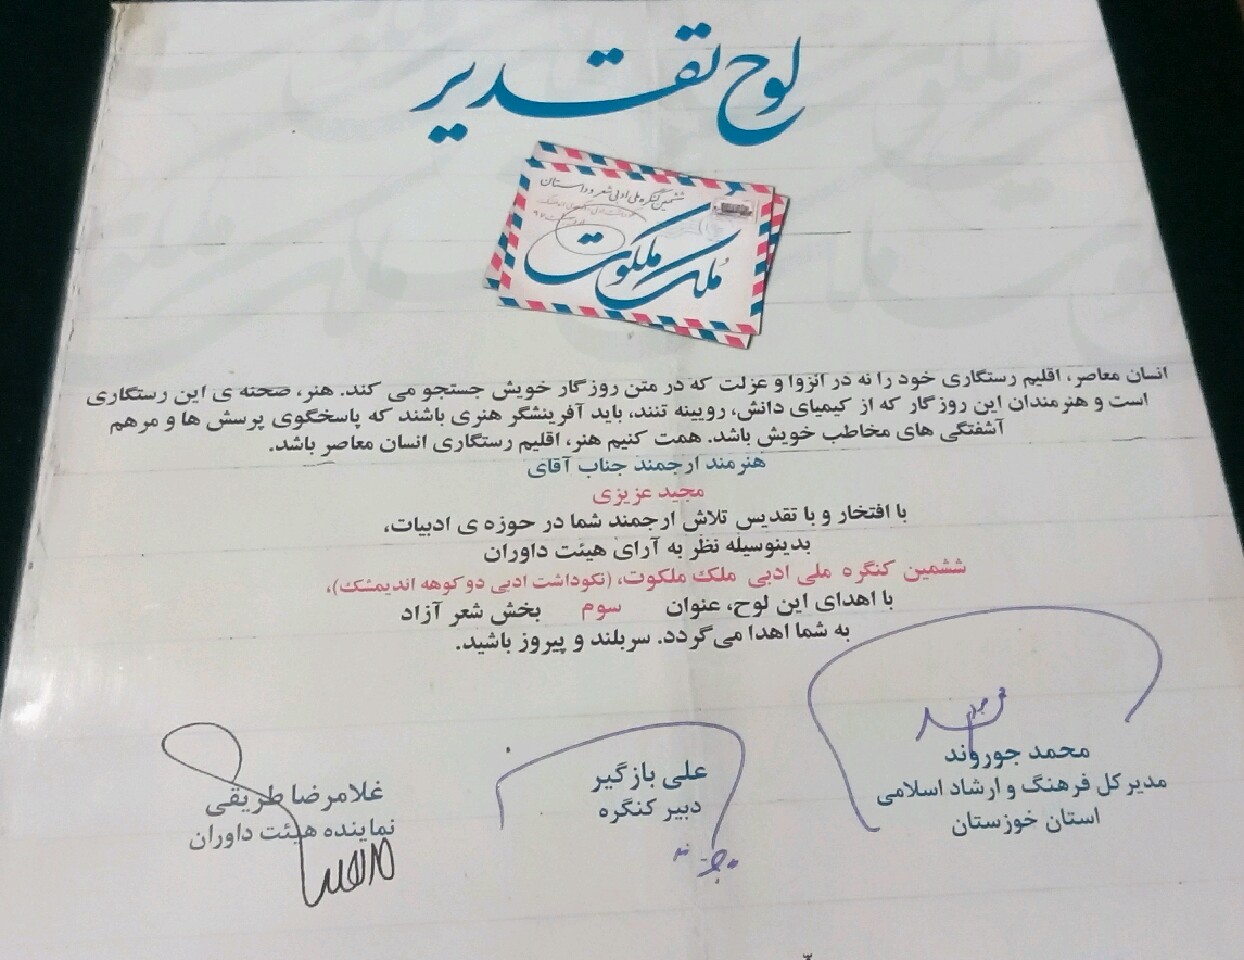 لوح تقدیر
ششمین کنگره ملی ادبی شعر و داستان
مُلک ملکوت
انسان معاصر، اقلیم رستگاری خود را نه در انزوا و عزلت که در متن روزگار خویش جستجو می کند. هنر، صحنه ی این رستگاری
است و هنرمندان این روزگار که از کیمیای دانش، رویینه تنند، باید آفرینشگر هنری باشند که پاسخگوی پرسش ها و مرهم
آشفتگی های مخاطب خویش باشد. همت کنیم هنر، اقلیم رستگاری انسان معاصر باشد.
هنرمند ارجمند جناب آقای
مجید عزیزی
با افتخار و با تقدیس تلاش ارجمند شما در حوزه ی ادبیات،
بدینوسیله نظر به آرای هیئت داوران
ششمین کنگره ملی ادبی ملک ملکوت، (نکوداشت ادبی دوکوهه اندیمشک)،
با اهدای این لوح، عنوان سوم بخش شعر آزاد
به شما اهدا می گردد. سربلند و پیروز باشید.
محمد جوروند
مدیر کل فرهنگ و ارشاد اسلامی
استان خوزستان
علی بازگیر
دبیر کنگره
غلامرضا طریقی
نماینده هیئت داوران